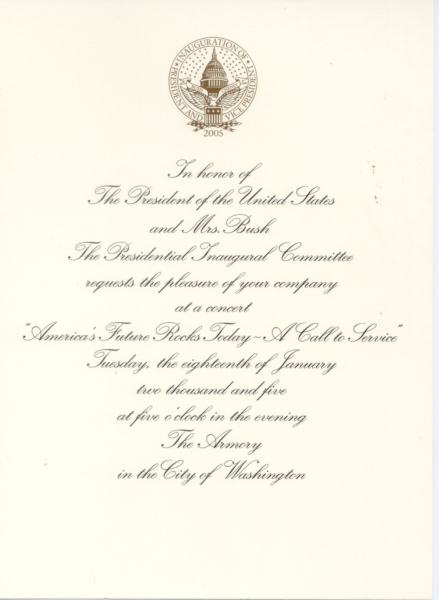 INAUGURATION OF
PRESIDENT AND VICE PRESIDENT
2005
In honor of
The President of the United States
and Mrs. Bush
The Presidential Inaugural Committee
requests the pleasure of your company
at a concert
"America's Future Rocks Today ~ A Call to Service"
Tuesday, the eighteenth of January
two thousand and five
at five o'clock in the evening
The Armory
in the City of Washington